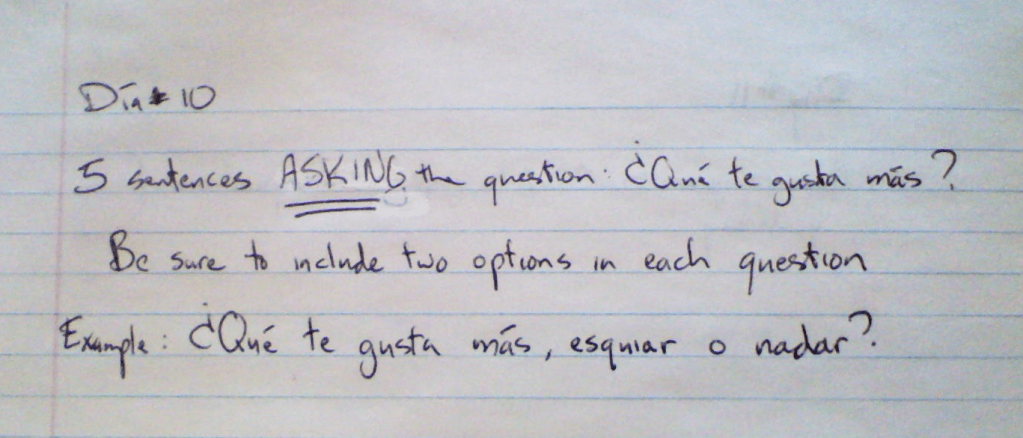 Día 10
5 sentences ASKING the question: ¿Qué te gusta más?
Be sure to include two options in each question
Example: ¿Qué te gusta más, esquiar o nadar?